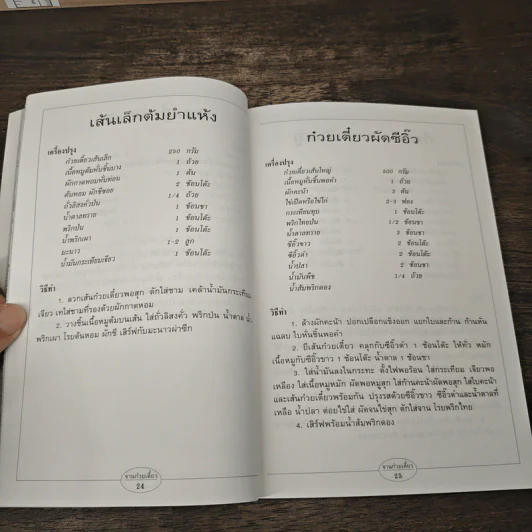 เส้นเล็กต้มยำแห้ง
เครื่องปรุง
ก๋วยเตี๋ยวเส้นเล็ก 250 กรัม
เนื้อหมูต้มหั่นชิ้นบาง 1 ถ้วย
ผักกาดหอมหั่นท่อน 1 ต้น
ต้นหอม ผักชีซอย 2 ช้อนโต๊ะ
ถั่วลิสงคั่วป่น 1/4 ถ้วย
น้ำตาลทราย 1 ช้อนชา
พริกป่น 1 ช้อนโต๊ะ
น้ำพริกเผา 2 ช้อนโต๊ะ
มะนาว 1-2 ลูก
น้ำมันกระเทียมเจียว 1 ช้อนโต๊ะ
วิธีทำ
1. ลวกเส้นก๋วยเตี๋ยวพอสุก ตักใส่ชาม เคล้าน้ำมันกระเทียม
เจียว เทใส่ชามที่รองด้วยผักกาดหอม
2. วางชิ้นเนื้อหมูต้มบนเส้น ใส่ถั่วลิสงคั่ว พริกป่น น้ำตาล
พริกเผา โรยต้นหอม ผักชี เสิร์ฟกับมะนาวผ่าซีก
จานก๋วยเตี๋ยว
24
ก๋วยเตี๋ยวผัดซีอิ๊ว
เครื่องปรุง
ก๋วยเตี๋ยวเส้นใหญ่ 500 กรัม
เนื้อหมูหั่นชิ้นพอคำ 1 ถ้วย
ผักคะน้า 3 ต้น
ไข่เป็ดหรือไข่ไก่ 2-3 ฟอง
กระเทียมทุบ 1 ช้อนโต๊ะ
พริกไทยป่น 1/2 ช้อนชา
น้ำตาลทราย 2 ช้อนชา
ซีอิ๊วขาว 2 ช้อนโต๊ะ
ซีอิ๊วดำ 2 ช้อนโต๊ะ
น้ำปลา 2 ช้อนชา
น้ำมันพืช 1/4 ถ้วย
น้ำส้มพริกดอง
วิธีทำ
1. ล้างผักคะน้า ปอกเปลือกแข็งออก แยกใบและก้าน ก้านหั่น
แฉลบ ใบหั่นชิ้นพอคำ
2. ยีเส้นก๋วยเตี๋ยว คลุกกับซีอิ๊วดำ 1 ช้อนโต๊ะ ให้ทั่ว หมัก
เนื้อหมูกับซีอิ๊วขาว 1 ช้อนโต๊ะ น้ำตาล 1 ช้อนชา
3. ใส่น้ำมันลงในกระทะ ตั้งไฟพอร้อน ใส่กระเทียม เจียวพอ
เหลือง ใส่เนื้อหมูหมัก ผัดพอหมูสุก ใส่ก้านคะน้าผัดพอสุก ใส่ใบคะน้า
และเส้นก๋วยเตี๋ยวพร้อมกัน ปรุงรสด้วยซีอิ๊วขาว ซีอิ๊วดำและน้ำตาลที่
เหลือ น้ำปลา ต่อยไข่ใส่ ผัดจนไข่สุก ตักใส่จาน โรยพริกไทย
4. เสิร์ฟพร้อมน้ำส้มพริกดอง
จานก๋วยเตี๋ยว
25